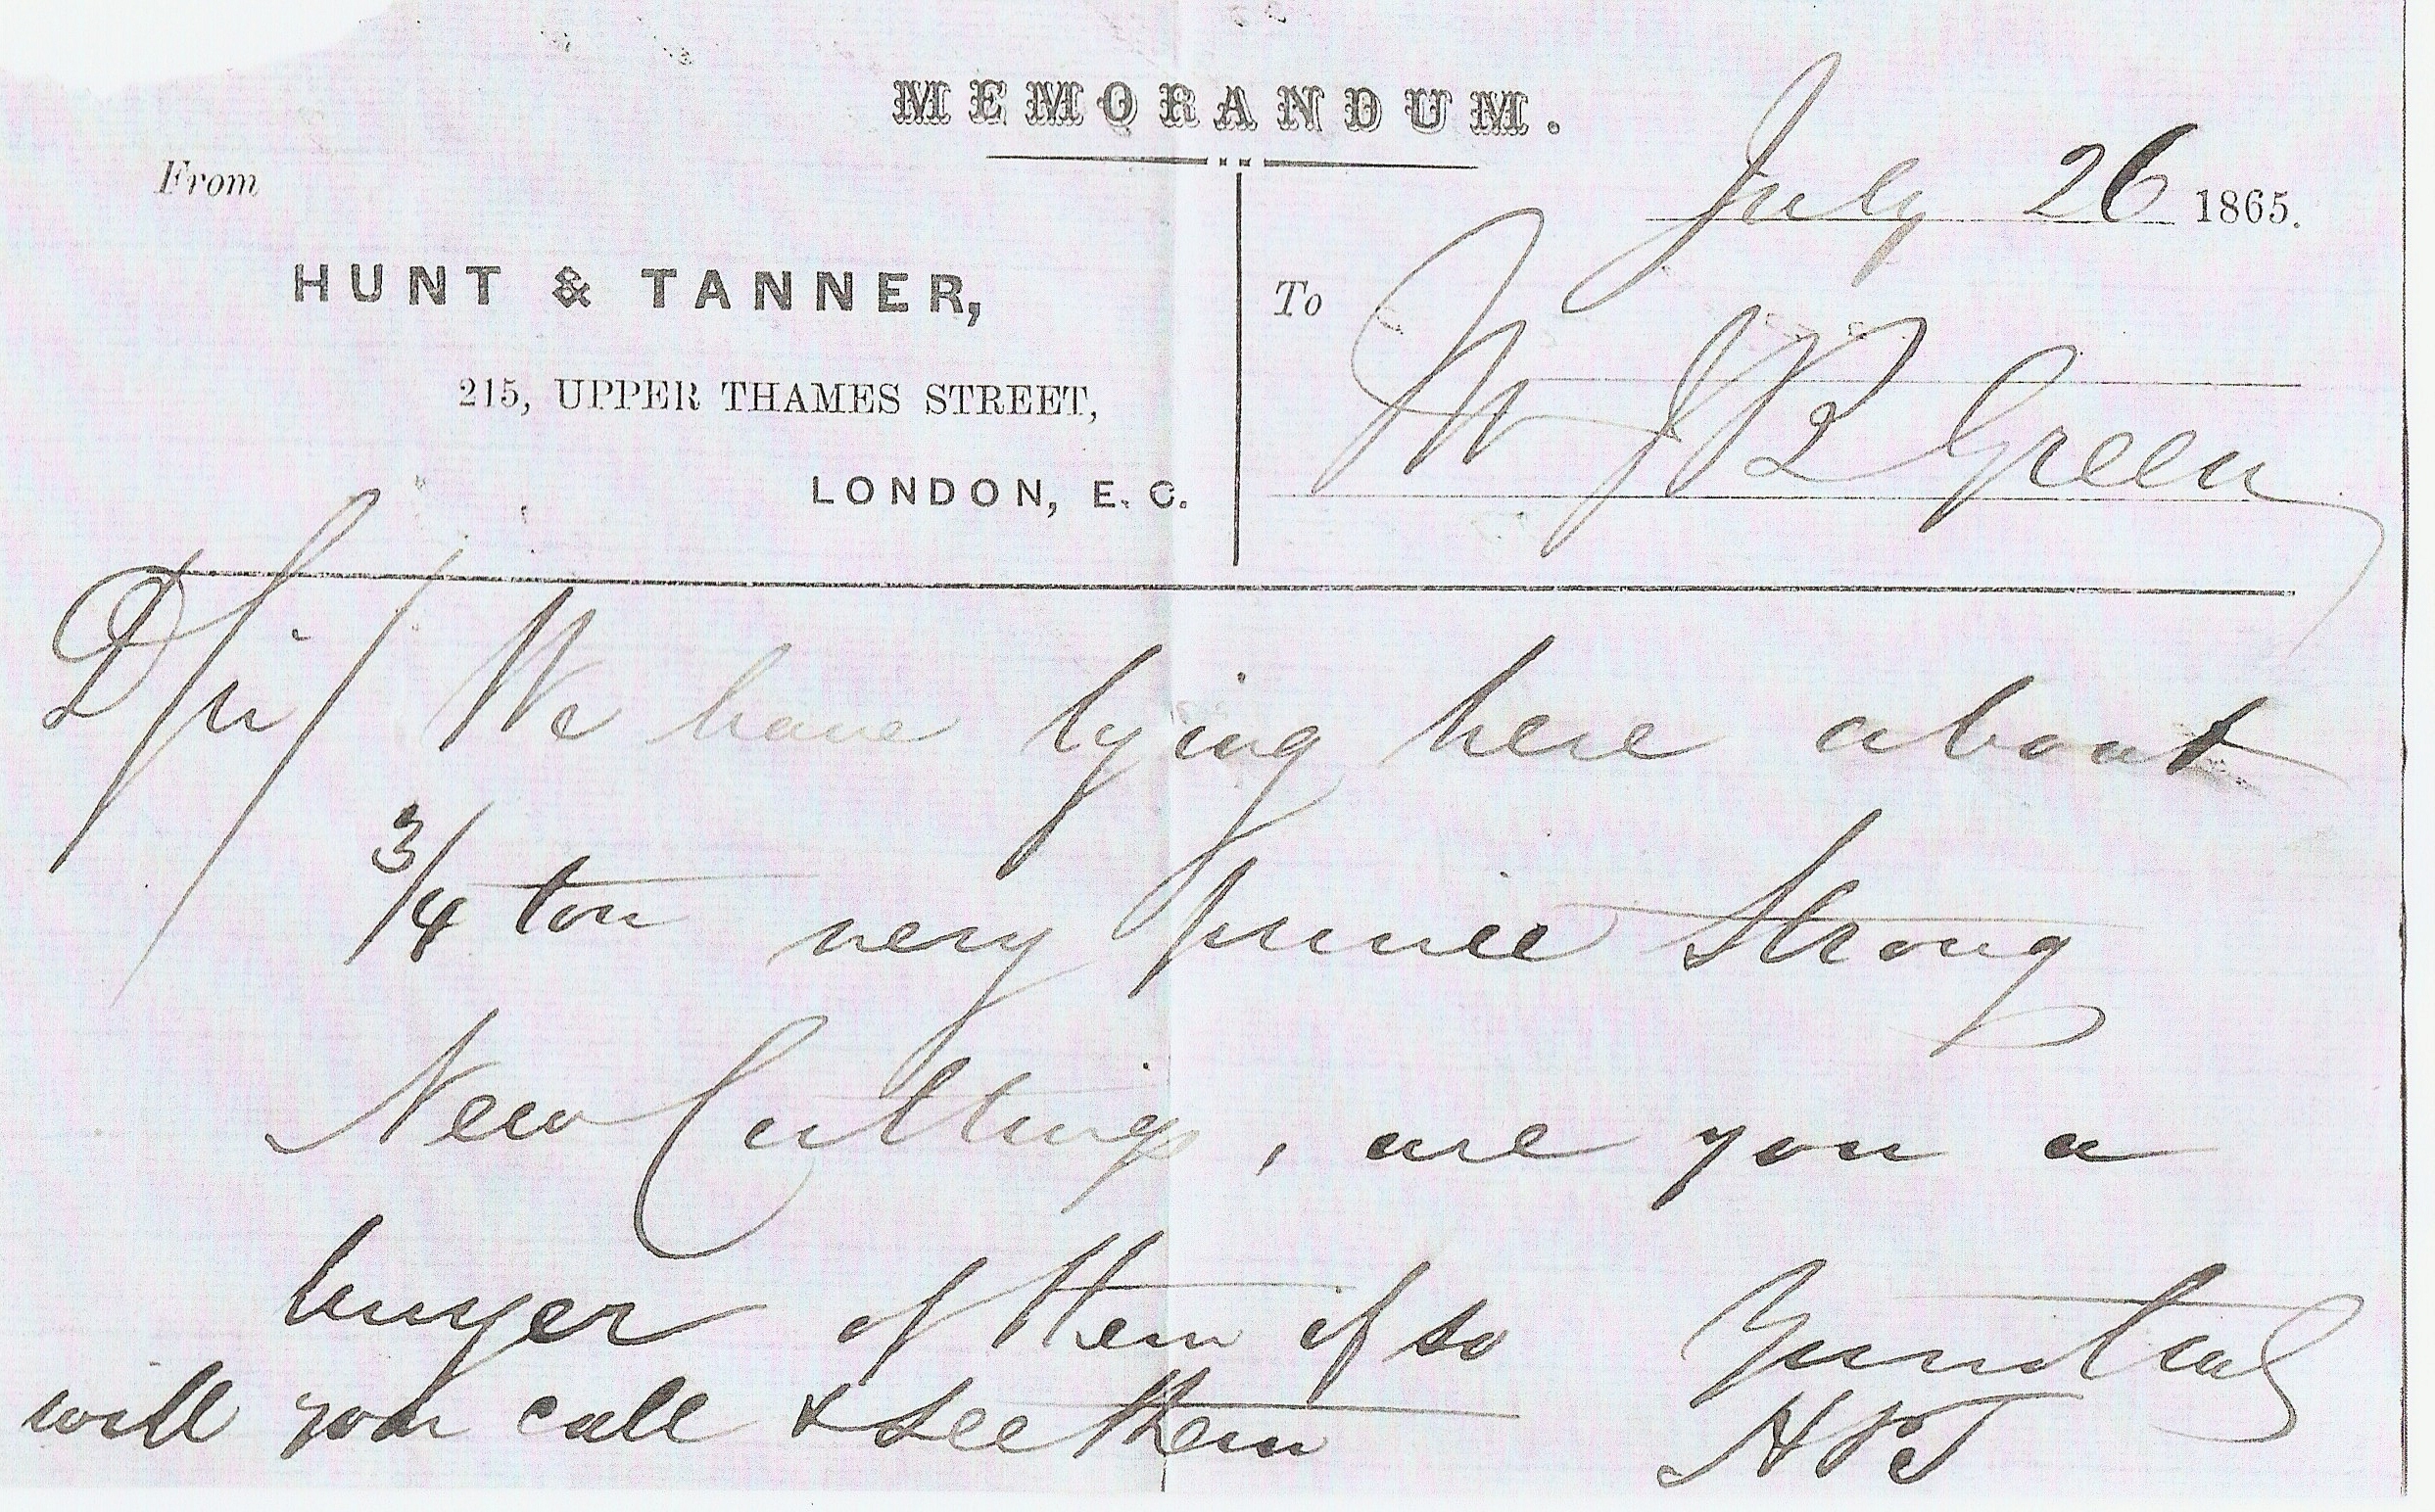 MEMORANDUM.
July 26 1865.
From
HUNT & TANNER,
215, UPPER THAMES STREET,
LONDON, E. C.
To
Mr J B Green
D Sir/ We have lying here about
3/4 ton very prime Strong
New Cuttings, are you a
buyer of them if so
will you call & see them
Yours truly
H & T